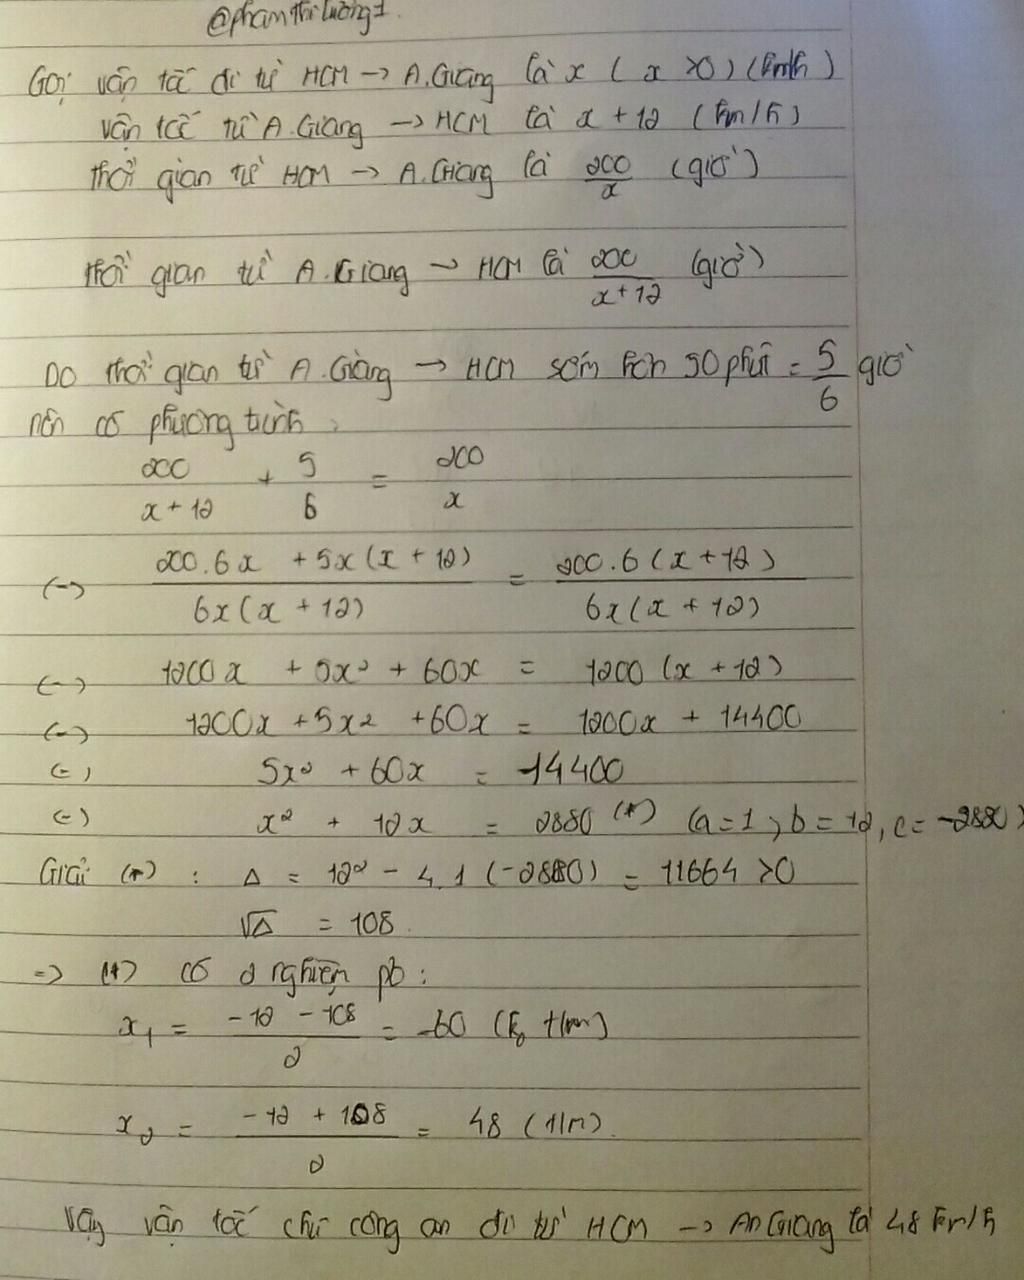 @phamthiluong1.
Gọi vận tốc đi từ HCM → A.Giang là x ( x > 0 ) (km/h)
vận tốc từ A.Giang → HCM là x + 12 (km/h)
thời gian từ HCM → A.Giang là 200/x (giờ)
thời gian từ A.Giang → HCM là 200/(x+12) (giờ)
Do thời gian từ A.Giang → HCM sớm hơn 50 phút = 5/6 giờ
nên có phương trình :
200/(x+12) + 5/6 = 200/x
(=) (200.6x + 5x(x + 12))/(6x(x + 12)) = (200.6(x+12))/(6x(x + 12))
(=) 1200x + 5x² + 60x = 1200 (x + 12)
(=) 1200x + 5x² + 60x = 1200x + 14400
(=) 5x² + 60x = 14400
(=) x² + 12x = 2880 (*) (a=1, b=12, c=-2880)
Giải (*) : Δ = 12² - 4.1(-2880) = 11664 >0
√Δ = 108.
=> (*) có 2 nghiệm pb :
x₁ = (-12 - 108)/2 = -60 (ko t/m)
x₂ = (-12 + 108)/2 = 48 (t/m).
Vậy vận tốc chú công an đi từ HCM → An Giang là 48 km/h